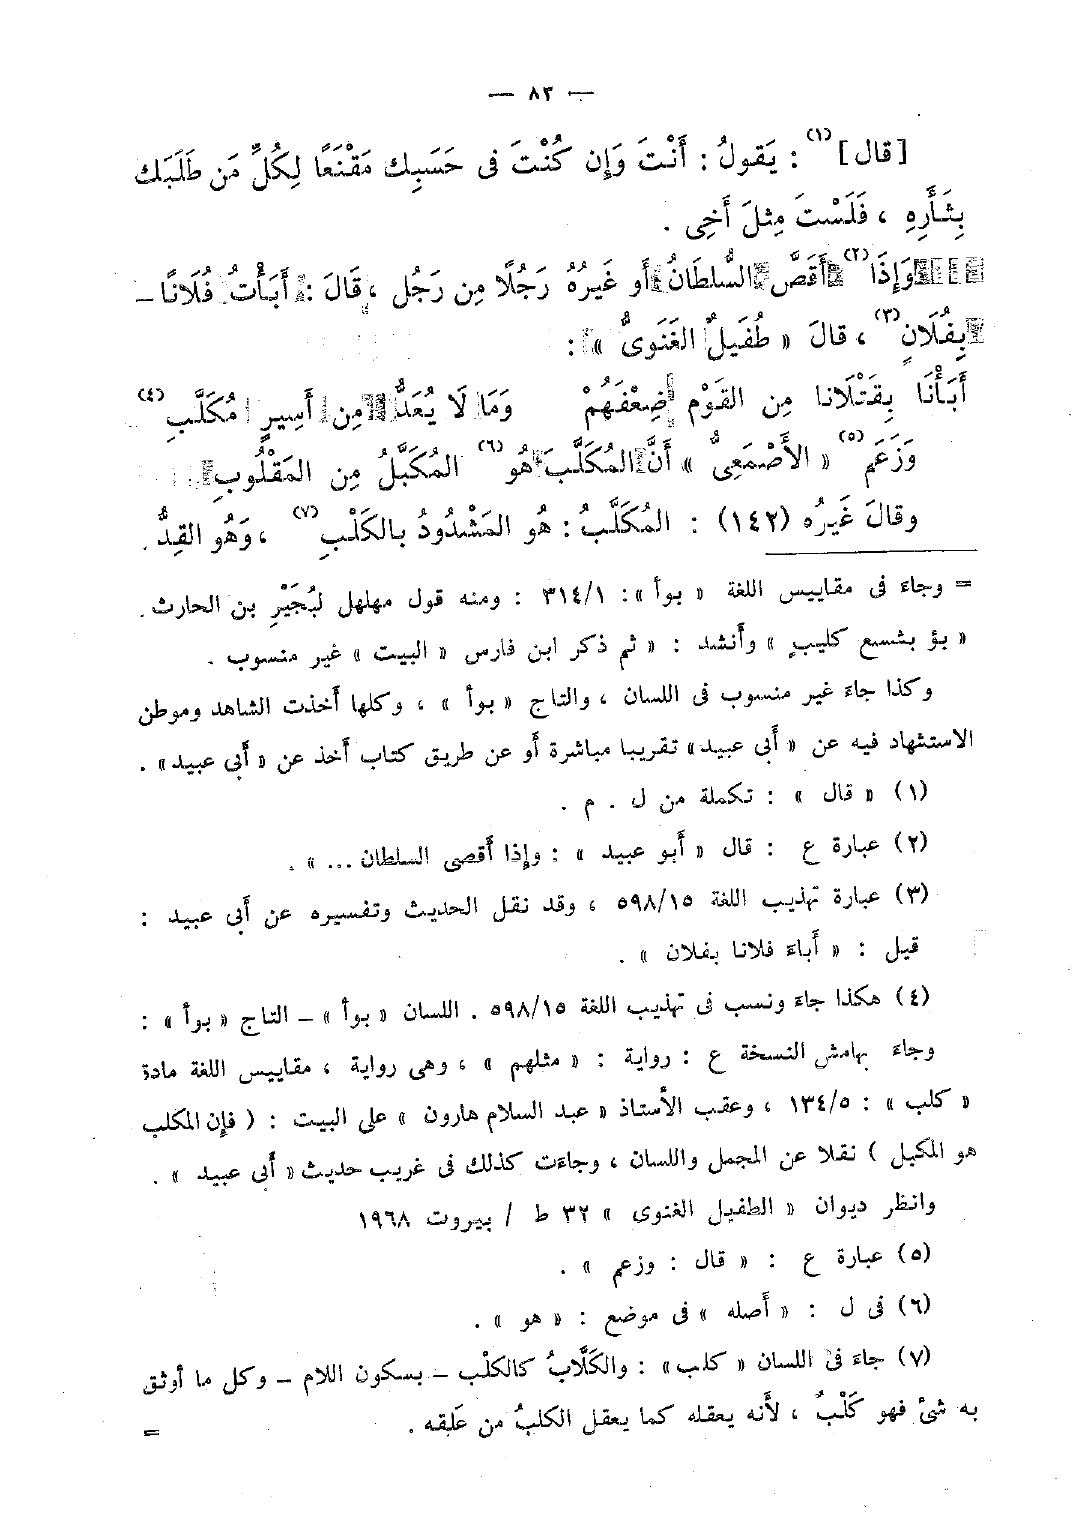 — ٨٣ —
[قال] (١) : يَقولُ : أَنْتَ وَإِن كُنْتَ فى حَسَبِك مَقْنَعًا لِكُلِّ مَن طَلَبَك
بِثَأْرِهِ ، فَلَسْتَ مِثلَ أَخِى .
وَإِذَا (٢) أَقَصَّ السُّلطَانُ أَو غَيرُهُ رَجُلًا مِن رَجُلٍ ، قَالَ : أَبَأْتُ فُلَانًا –
بِفُلَانٍ (٣) ، قالَ « طُفَيلٌ الغَنَوىُّ » :
أَبَأْنَا بِقَتْلَانا مِن القَوْم ضِعْفَهُمْ     وَمَا لَا يُعَدُّ مِن أَسِيرٍ مُكَلَّبِ (٤)
وَزَعَم (٥) « الأَصْمَعِىُّ » أَنَّ المُكَلَّبَ هُو (٦) المُكَبَّلُ مِن المَقْلُوبِ
وقالَ غَيرُه (١٤٢) : المُكَلَّبُ : هُو المَشْدُودُ بالكَلْبِ (٧) ، وَهُو القِدُّ .
= وجاء فى مقاييس اللغة « بوأ » : ٣١٤/١ : ومنه قول مهلهل لبُجَيْرِ بن الحارث .
« بؤ بشسع كليبٍ » وأنشد : « ثم ذكر ابن فارس « البيت » غير منسوب .
وكذا جاءَ غير منسوب فى اللسان ، والتاج « بوأ » ، وكلها أخذت الشاهد وموطن
الاستشهاد فيه عن « أبى عبيد » تقريبا مباشرة أو عن طريق كتاب أخذ عن « أبى عبيد » .
(١) « قال » : تكملة من ل . م .
(٢) عبارة ع : قال « أبو عبيد » : وإذا أقصى السلطان ... » .
(٣) عبارة تهذيب اللغة ٥٩٨/١٥ ، وقد نقل الحديث وتفسيره عن أبى عبيد :
قيل : « أباءَ فلانا بفلان » .
(٤) هكذا جاءَ ونسب فى تهذيب اللغة ٥٩٨/١٥ . اللسان « بوأ » – التاج « بوأ » :
وجاءَ بهامش النسخة ع : رواية : « مثلهم » ، وهى رواية ، مقاييس اللغة مادة
« كلب » : ١٣٤/٥ ، وعقب الأستاذ « عبد السلام هارون » على البيت : ( فإن المكلب
هو المكبل ) نقلا عن المجمل واللسان ، وجاءَت كذلك فى غريب حديث « أبى عبيد » .
وانظر ديوان « الطفيل الغنوى » ٣٢ ط / بيروت ١٩٦٨
(٥) عبارة ع : « قال : وزعم » .
(٦) فى ل : « أصله » فى موضع : « هو » .
(٧) جاءَ فى اللسان « كلب » : والكَلَّابُ كالكلْب – بسكون اللام – وكل ما أوثق
به شىءٌ فهو كَلْبٌ ، لأَنه يعقله كما يعقل الكلبُ من عَلِقه .
=